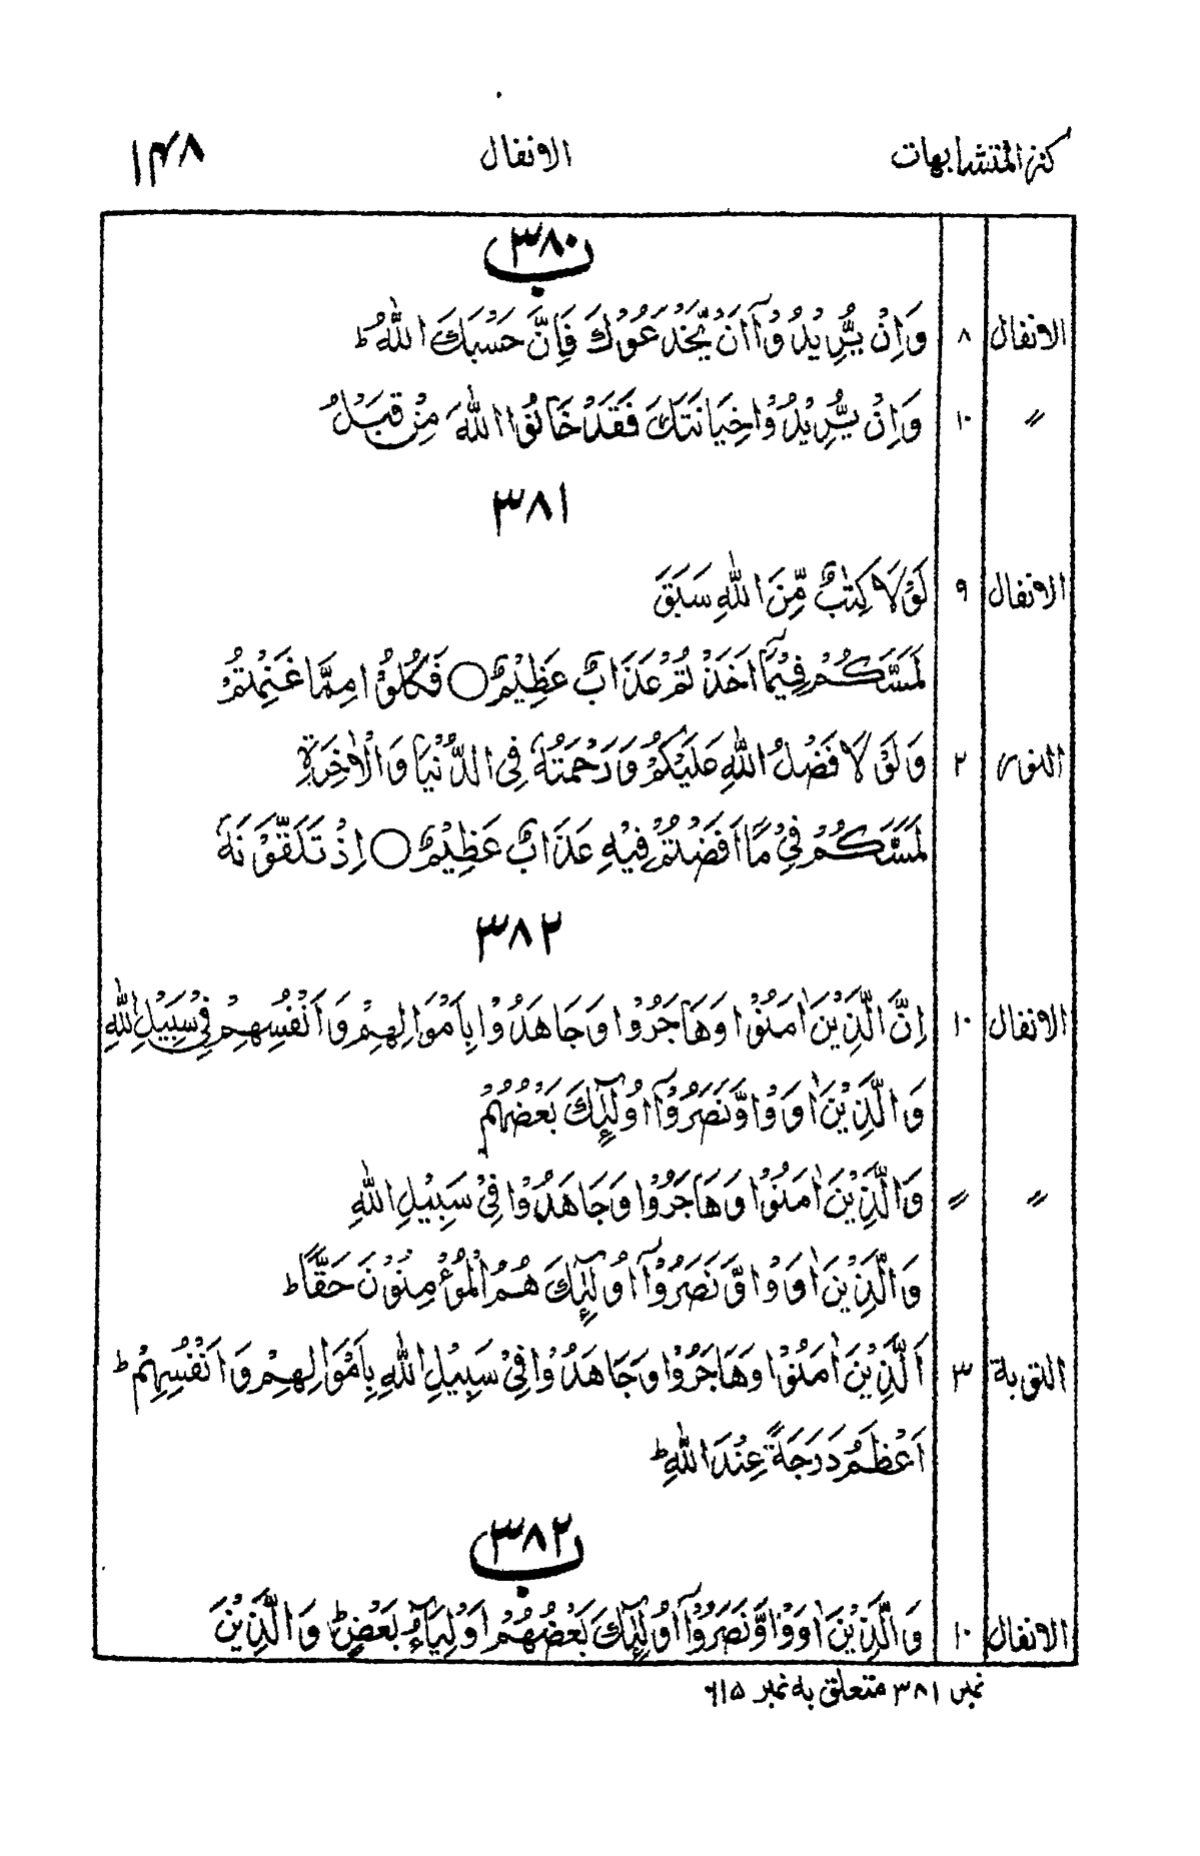 كنز المتشابهات الانفال ۱۴۸
۳۸۰ ب
الانفال ۸ وَاِنْ يُّرِيْدُوْٓا اَنْ يَّخْدَعُوْكَ فَاِنَّ حَسْبَكَ اللّٰهُ ؕ
〃 ۱۰ وَاِنْ يُّرِيْدُوْا خِيَانَتَكَ فَقَدْ خَانُوا اللّٰهَ مِنْ قَبْلُ
۳۸۱
الانفال ۹ لَوْلَا كِتٰبٌ مِّنَ اللّٰهِ سَبَقَ
لَمَسَّكُمْ فِيْمَآ اَخَذْتُمْ عَذَابٌ عَظِيْمٌ ○ فَكُلُوْا مِمَّا غَنِمْتُمْ
النور ۲ وَلَوْلَا فَضْلُ اللّٰهِ عَلَيْكُمْ وَرَحْمَتُهٗ فِى الدُّنْيَا وَالْاٰخِرَةِ
لَمَسَّكُمْ فِيْ مَآ اَفَضْتُمْ فِيْهِ عَذَابٌ عَظِيْمٌ ○ اِذْ تَلَقَّوْنَهٗ
۳۸۲
الانفال ۱۰ اِنَّ الَّذِيْنَ اٰمَنُوْا وَهَاجَرُوْا وَجَاهَدُوْا بِاَمْوَالِهِمْ وَاَنْفُسِهِمْ فِيْ سَبِيْلِ اللّٰهِ
وَالَّذِيْنَ اٰوَوْا وَّنَصَرُوْٓا اُولٰٓئِكَ بَعْضُهُمْ
〃 〃 وَالَّذِيْنَ اٰمَنُوْا وَهَاجَرُوْا وَجَاهَدُوْا فِيْ سَبِيْلِ اللّٰهِ
وَالَّذِيْنَ اٰوَوْا وَّنَصَرُوْٓا اُولٰٓئِكَ هُمُ الْمُؤْمِنُوْنَ حَقًّا ؕ
التوبة ۳ اَلَّذِيْنَ اٰمَنُوْا وَهَاجَرُوْا وَجَاهَدُوْا فِيْ سَبِيْلِ اللّٰهِ بِاَمْوَالِهِمْ وَاَنْفُسِهِمْ ؕ
اَعْظَمُ دَرَجَةً عِنْدَ اللّٰهِ ؕ
۳۸۲ ب
الانفال ۱۰ وَالَّذِيْنَ اٰوَوْا وَّنَصَرُوْٓا اُولٰٓئِكَ بَعْضُهُمْ اَوْلِيَآءُ بَعْضٍ ؕ وَالَّذِيْنَ
نمبر ۳۸۱ متعلق بہ نمبر ۶۱۵